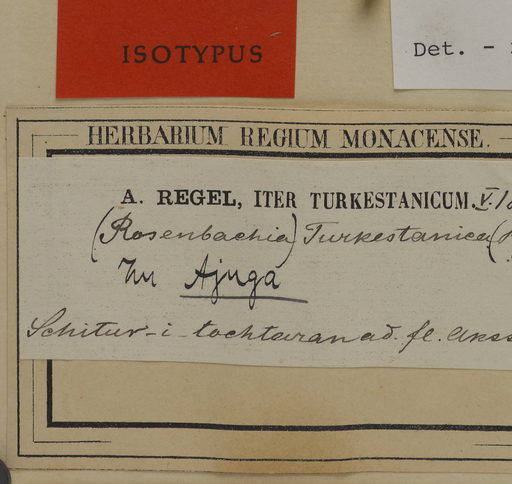 ISOTYPUS
Det. -
HERBARIUM REGIUM MONACENSE.
A. REGEL, ITER TURKESTANICUM. V.
(Rosenbachia) Turkestanica (
Zu Ajuga
Schitur-i-tochtaran ad. fl.